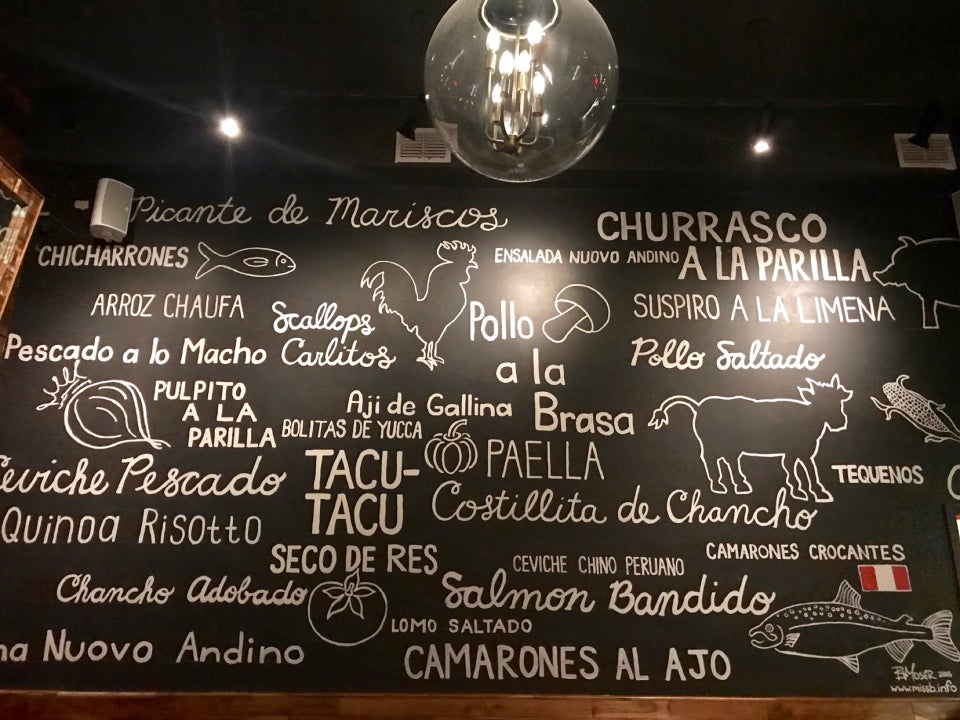 Picante de Mariscos
CHURRASCO
A LA PARILLA
CHICHARRONES
ENSALADA NUOVO ANDINO
ARROZ CHAUFA
Scallops
Carlitos
Pollo
a la
Brasa
SUSPIRO A LA LIMENA
Pescado a lo Macho
Pollo Saltado
PULPITO
A LA
PARILLA
Aji de Gallina
BOLITAS DE YUCCA
Ceviche Pescado
TACU-
TACU
PAELLA
TEQUENOS
Quinoa Risotto
Costillita de Chancho
SECO DE RES
CEVICHE CHINO PERUANO
CAMARONES CROCANTES
Chancho Adobado
Salmon Bandido
LOMO SALTADO
Nuovo Andino
CAMARONES AL AJO
MOSER 2016
www.missb.info